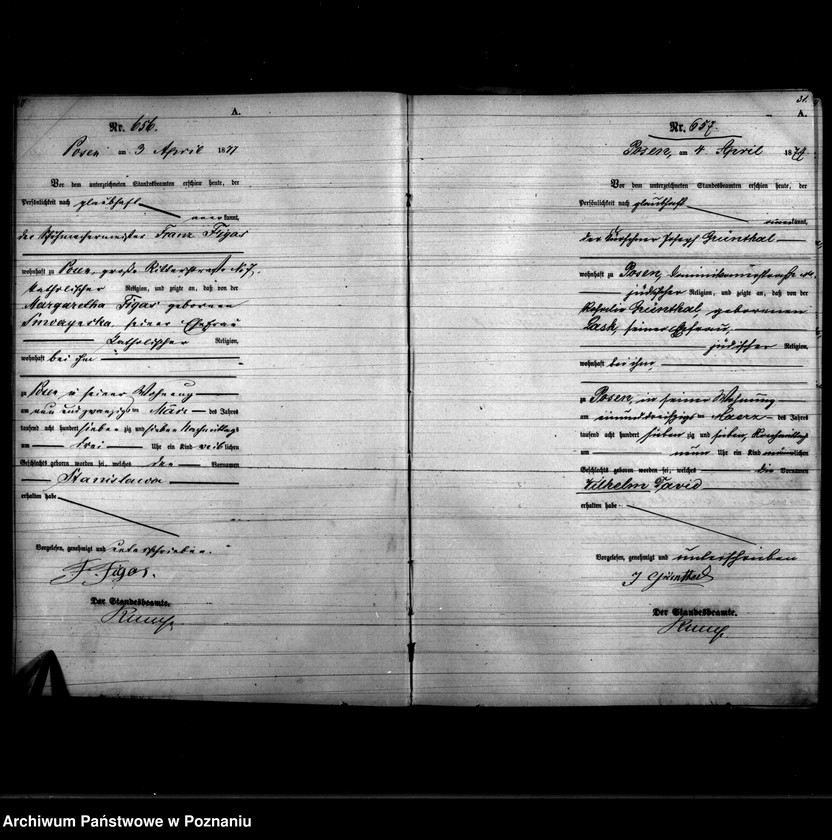 A.
Nr. 656.
Posen am 3 April 1877
Vor dem unterzeichneten Standesbeamten erschien heute, der
Persönlichkeit nach
kannt,
der Franz Figas
wohnhaft zu Posen, große Ritterstraße N. 7,
katholischer Religion, und zeigte an, daß von der
Margaretha Figas geborenen
seiner Ehefrau
katholischer Religion,
wohnhaft bei ihm
zu Posen in seiner Wohnung
am neun und zwanzigsten März des Jahres
tausend acht hundert sieben zig und sieben Nachmittags
um drei Uhr ein Kind weiblichen
Geschlechts geboren worden sei, welches den Vornamen
Stanislawa
erhalten habe
Vorgelesen, genehmigt und unterschrieben.
F. Figas.
Der Standesbeamte.
31.
A.
Nr. 657.
Posen, am 4 April 1877
Vor dem unterzeichneten Standesbeamten erschien heute, der
Persönlichkeit nach
kannt,
der Kürschner Joseph Grünthal
wohnhaft zu Posen,
jüdischer Religion, und zeigte an, daß von der
Grünthal, geborenen
Lask, seiner Ehefrau,
jüdischer Religion,
wohnhaft bei ihm,
zu Posen, in seiner Wohnung
am einunddreißigsten Maerz des Jahres
tausend acht hundert sieben zig und sieben, Nachmittags
um neun Uhr ein Kind männlichen
Geschlechts geboren worden sei, welches die Vornamen
Wilhelm David
erhalten habe
Vorgelesen, genehmigt und unterschrieben
J Grünthal
Der Standesbeamte.
Archiwum Państwowe w Poznaniu